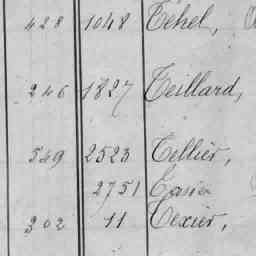 428 1048 Tehel,
246 1827 Teillard,
549 2523 Tellier,
2751
302 11 Texier,